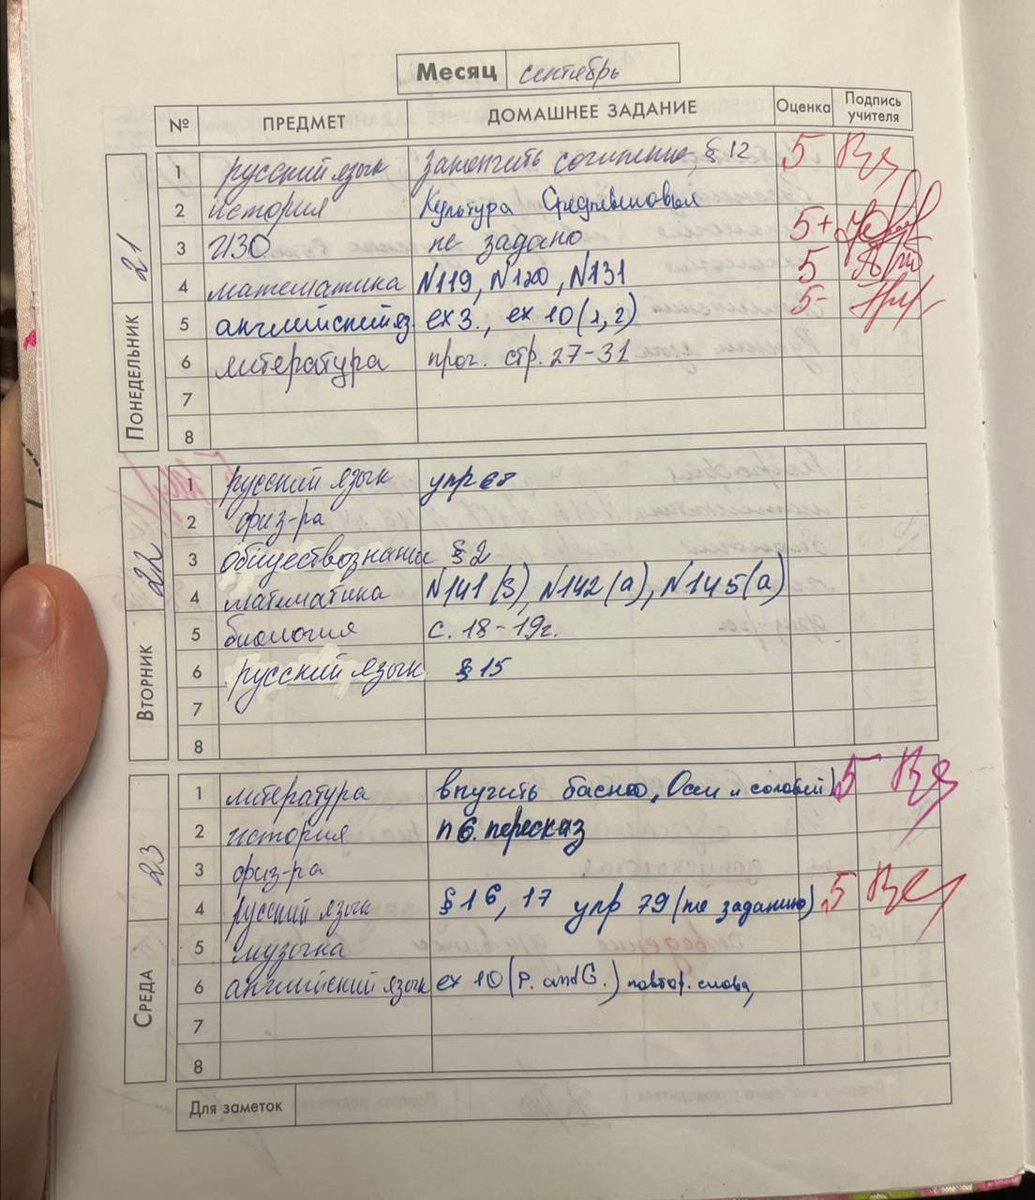 Месяц сентябрь
№ ПРЕДМЕТ ДОМАШНЕЕ ЗАДАНИЕ Оценка Подпись учителя
21 Понедельник
1 русский язык закончить сочинение § 12 5
2 история Культура Средневековья
3 ИЗО не задано 5+
4 математика №119, №120, №131 5
5 английский яз ex 3., ex 10 (1, 2) 5-
6 литература проч. стр. 27-31
7
8
22 Вторник
1 русский язык упр 68
2 физ-ра
3 обществознание § 2
4 математика №141 (3), №142 (а), №145 (а)
5 биология с. 18-19г.
6 русский язык § 15
7
8
23 Среда
1 литература выучить басню, Осел и соловей) 5
2 история п 6. пересказ
3 физ-ра
4 русский язык § 16, 17 упр 79 (по заданию) 5
5 музыка
6 английский язык ex 10 (P. and G.) повтор. слова,
7
8
Для заметок